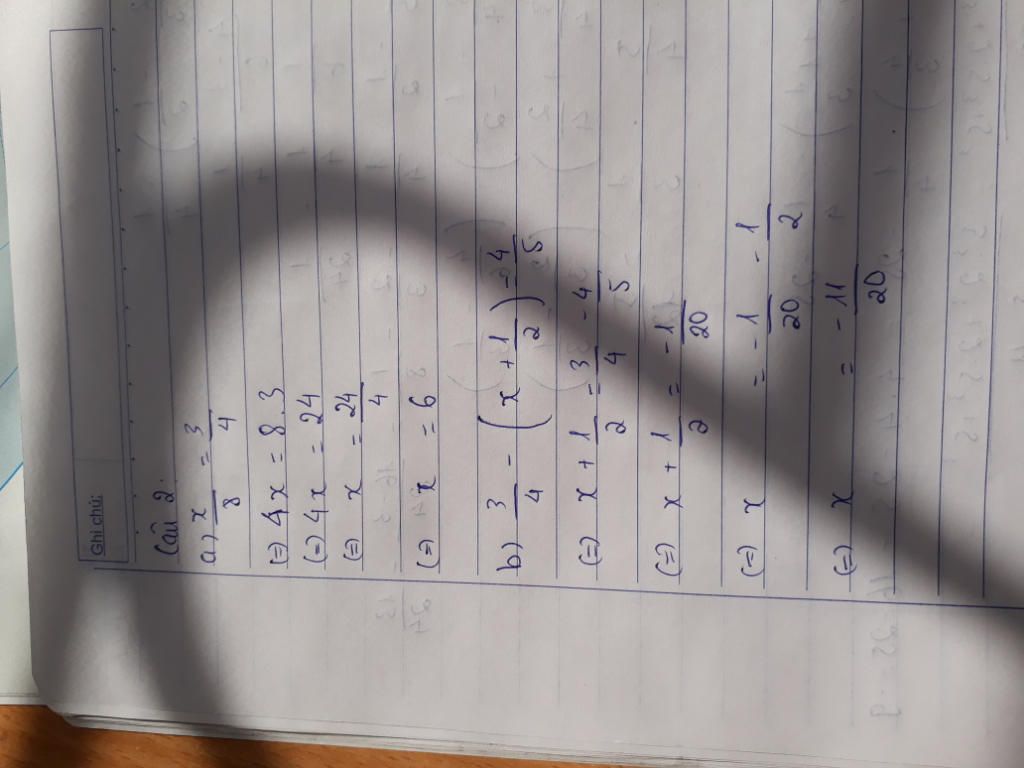 Ghi chú:
Câu 2.
a) x/8 = 3/4
(=) 4x = 8.3
(=) 4x = 24
(=) x = 24/4
(=) x = 6
b) 3/4 - (x + 1/2) = 4/5
(=) x + 1/2 = 3/4 - 4/5
(=) x + 1/2 = -1/20
(=) x = -1/20 - 1/2
(=) x = -11/20